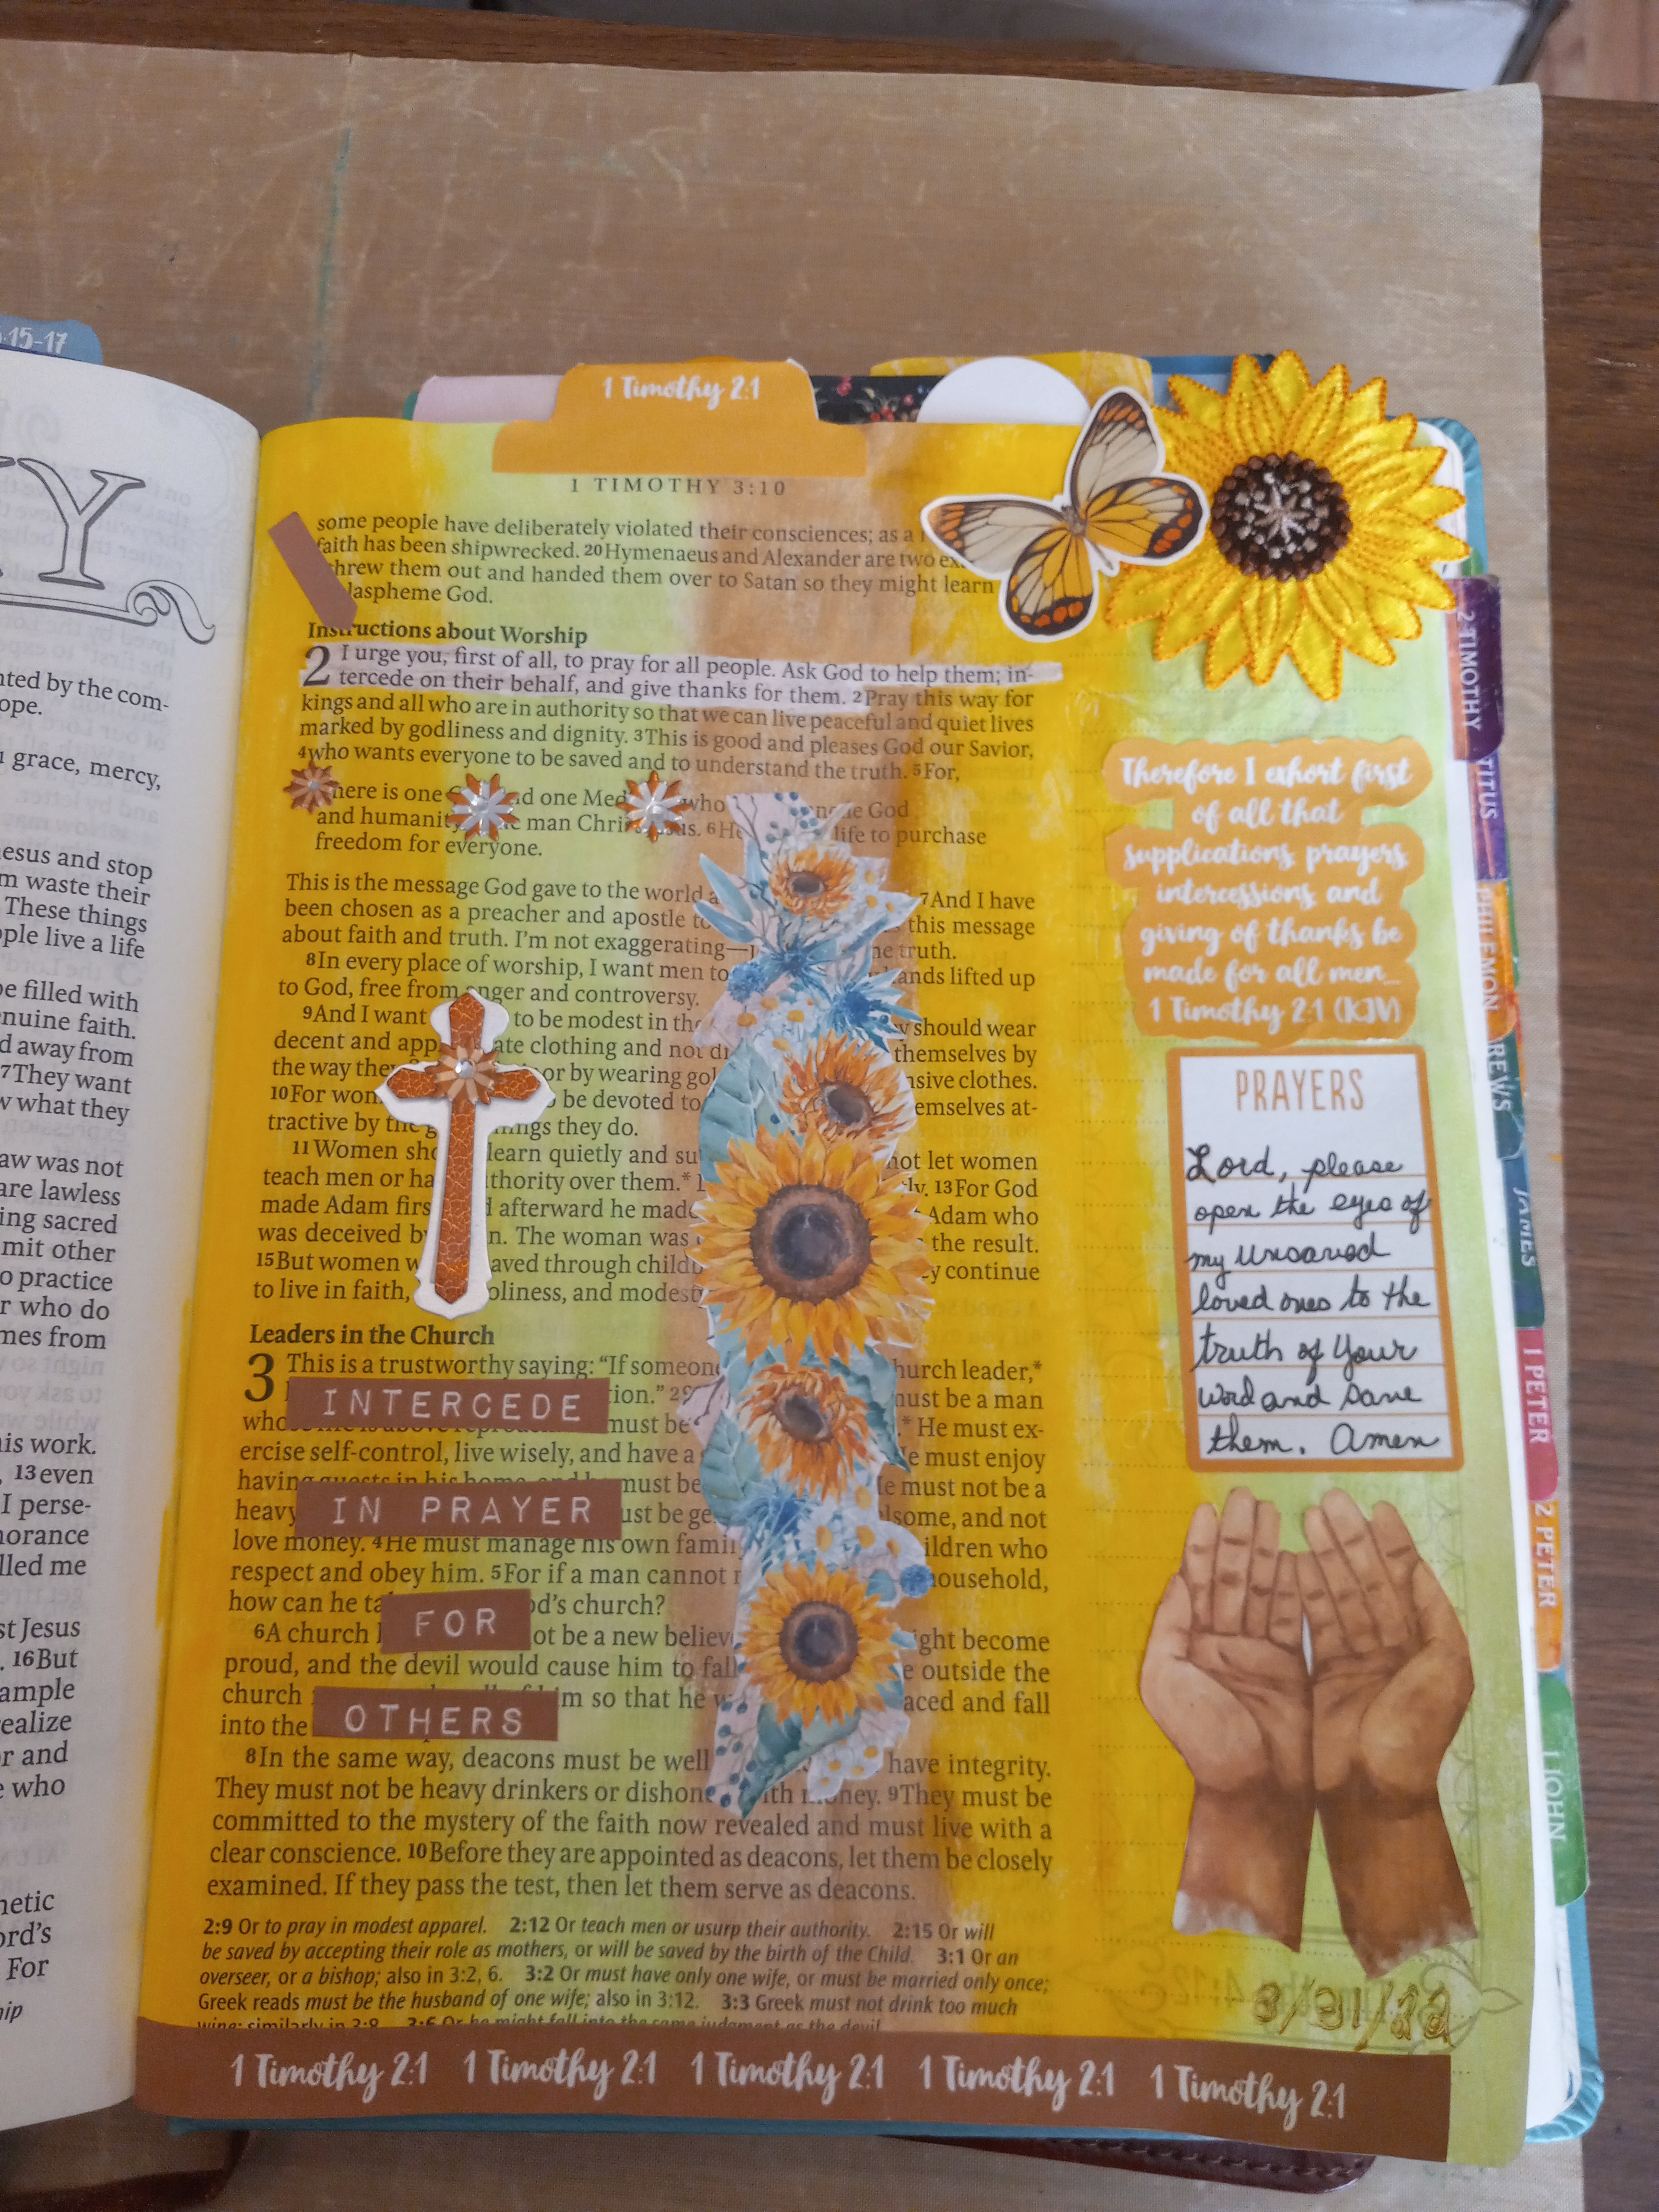 15-17
Y
nted by the com-
ope.
grace, mercy,
esus and stop
m waste their
These things
ople live a life
be filled with
nuine faith.
d away from
7They want
w what they
aw was not
are lawless
ing sacred
mit other
o practice
r who do
mes from
is work.
, 13even
I perse-
norance
lled me
st Jesus
. 16But
ample
ealize
r and
e who
netic
ord's
For
hip
1 Timothy 2:1
1 TIMOTHY 3:10
some people have deliberately violated their consciences; as a
faith has been shipwrecked. 20Hymenaeus and Alexander are two ex
threw them out and handed them over to Satan so they might learn
laspheme God.
Instructions about Worship
2 I urge you, first of all, to pray for all people. Ask God to help them; in-
tercede on their behalf, and give thanks for them. 2Pray this way for
kings and all who are in authority so that we can live peaceful and quiet lives
marked by godliness and dignity. 3This is good and pleases God our Savior,
4who wants everyone to be saved and to understand the truth. 5For,
here is one d one Med who God
and humanit e man Chri us. 6He life to purchase
freedom for everyone.
This is the message God gave to the world a 7And I have
been chosen as a preacher and apostle to this message
about faith and truth. I'm not exaggerating— he truth.
8In every place of worship, I want men to ands lifted up
to God, free from anger and controversy.
9And I want to be modest in the y should wear
decent and app ate clothing and not dr themselves by
the way the or by wearing gol nsive clothes.
10For wom be devoted to emselves at-
tractive by the g things they do.
11Women sho learn quietly and su not let women
teach men or ha thority over them.* ly. 13For God
made Adam firs d afterward he made Adam who
was deceived by n. The woman was the result.
15But women w aved through childb y continue
to live in faith, oliness, and modesty
Leaders in the Church
3 This is a trustworthy saying: "If someone hurch leader,*
INTERCEDE tion." must be a man
who must be .* He must ex-
ercise self-control, live wisely, and have a e must enjoy
having guests in his home, and must be He must not be a
heavy IN PRAYER ust be ge lsome, and not
love money. 4He must manage his own famil ildren who
respect and obey him. 5For if a man cannot household,
how can he ta od's church?
FOR
6A church l ot be a new believe ight become
proud, and the devil would cause him to fall e outside the
church m so that he w aced and fall
into the OTHERS
8In the same way, deacons must be well have integrity.
They must not be heavy drinkers or dishone ith money. 9They must be
committed to the mystery of the faith now revealed and must live with a
clear conscience. 10Before they are appointed as deacons, let them be closely
examined. If they pass the test, then let them serve as deacons.
2:9 Or to pray in modest apparel. 2:12 Or teach men or usurp their authority. 2:15 Or will
be saved by accepting their role as mothers, or will be saved by the birth of the Child. 3:1 Or an
overseer, or a bishop; also in 3:2, 6. 3:2 Or must have only one wife, or must be married only once;
Greek reads must be the husband of one wife; also in 3:12. 3:3 Greek must not drink too much
wine; similarly in 3:8. 3:6 Or he might fall into the same judgment as the devil
1 Timothy 2:1 1 Timothy 2:1 1 Timothy 2:1 1 Timothy 2:1 1 Timothy 2:1
Therefore I exhort first
of all that
supplications, prayers,
intercessions, and
giving of thanks be
made for all men...
1 Timothy 2:1 (KJV)
PRAYERS
Lord, please
open the eyes of
my unsaved
loved ones to the
truth of Your
word and save
them. Amen
3/31/22
2 TIMOTHY
TITUS
PHILEMON
REWS
JAMES
1 PETER
2 PETER
1 JOHN